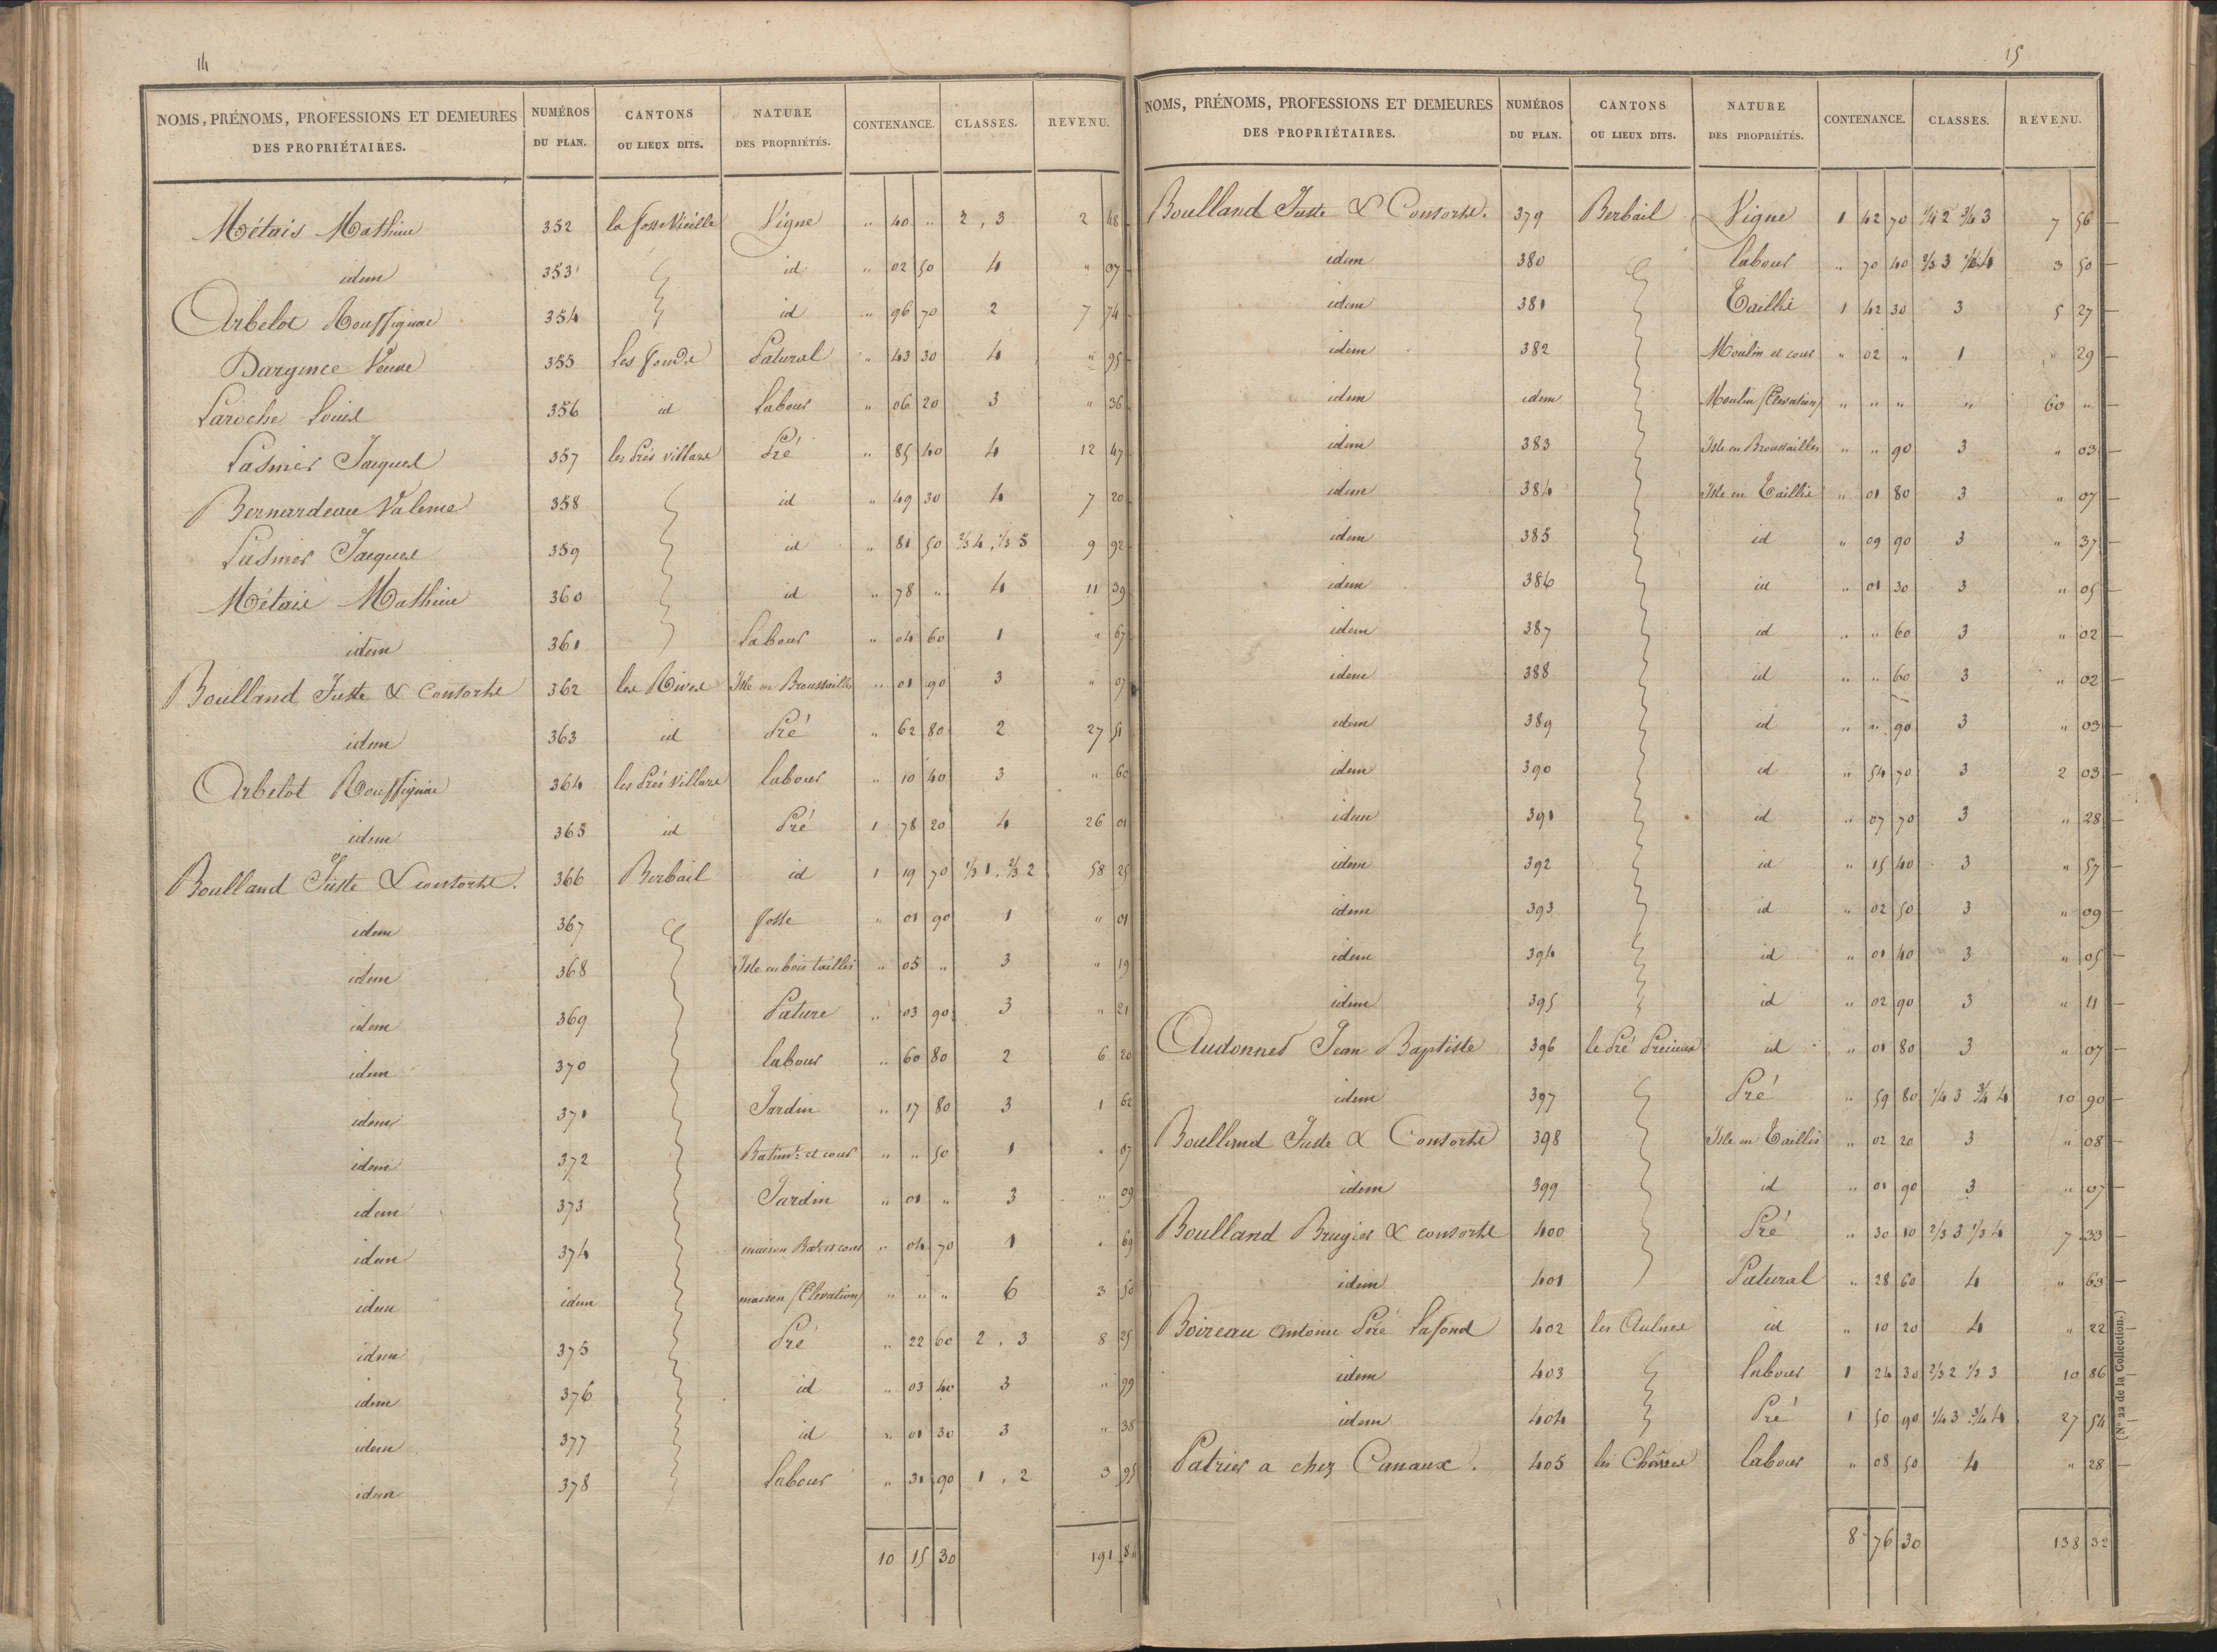 14
NOMS, PRÉNOMS, PROFESSIONS ET DEMEURES DES PROPRIÉTAIRES. NUMÉROS DU PLAN. CANTONS OU LIEUX DITS. NATURE DES PROPRIÉTÉS. CONTENANCE. CLASSES. REVENU.
Métais Mathieu 352 la fosse Vieille Vigne " 40 " 2, 3 2 48
idem 353 id " 02 50 4 " 07
Arbelot Rouffignac 354 id " 96 70 2 7 74
Dargence Veuve 355 les fonds Patural " 43 30 4 " 95
Laroche Louis 356 id labour " 06 20 3 " 36
Lasnier Jacques 357 les Prés villars Pré " 85 40 4 12 47
Bernardeau Valeme 358 id " 49 30 4 7 20
Lasnier Jacques 359 id " 81 50 2/3 4, 1/3 5 9 92
Métais Mathieu 360 id " 78 " 4 11 39
idem 361 labour " 04 60 1 " 67
Boulland Juste & Consorts 362 les Rives Isle en Broussailles " 01 90 3 " 07
idem 363 id Pré " 62 80 2 27 51
Arbelot Rouffignac 364 les Prés Villars labour " 10 40 3 " 60
idem 365 id Pré 1 78 20 4 26 01
Boulland Juste & consorts. 366 Berbail id 1 19 70 1/3 1, 2/3 2 58 25
idem 367 fosse " 01 90 1 " 01
idem 368 Isle en bois taillis " 05 " 3 " 19
idem 369 Pature " 03 90 3 " 21
idem 370 labour " 60 80 2 6 20
idem 371 Jardin " 17 80 3 1 62
idem 372 Batimts et cour " " 50 1 " 07
idem 373 Jardin " 01 " 3 " 09
idem 374 maison Bat et cour " 04 70 1 " 69
idem idem maison (Elevation) " " " 6 3 50
idem 375 Pré " 22 60 2, 3 8 25
idem 376 id " 03 40 3 " 99
idem 377 id " 01 30 3 " 38
idem 378 labour " 31 90 1, 2 3 95
10 15 30 191 84
15
NOMS, PRÉNOMS, PROFESSIONS ET DEMEURES DES PROPRIÉTAIRES. NUMÉROS DU PLAN. CANTONS OU LIEUX DITS. NATURE DES PROPRIÉTÉS. CONTENANCE. CLASSES. REVENU.
Boulland Juste & Consorts. 379 Berbail Vigne 1 42 70 1/4 2 3/4 3 7 56
idem 380 labour " 70 40 2/3 3 1/3 4 3 50
idem 381 Taillis 1 42 30 3 5 27
idem 382 Moulin et cour " 02 " 1 " 29
idem idem Moulin (Elevation) " " " " 60 "
idem 383 Isle en Broussailles " " 90 3 " 03
idem 384 Isle en Taillis " 01 80 3 " 07
idem 385 id " 09 90 3 " 37
idem 386 id " 01 30 3 " 05
idem 387 id " " 60 3 " 02
idem 388 id " " 60 3 " 02
idem 389 id " " 90 3 " 03
idem 390 id " 54 70 3 2 03
idem 391 id " 07 70 3 " 28
idem 392 id " 15 40 3 " 57
idem 393 id " 02 50 3 " 09
idem 394 id " 01 40 3 " 05
idem 395 id " 02 90 3 " 11
Audonnet Jean Baptiste 396 le Pré id " 01 80 3 " 07
idem 397 Pré " 59 80 1/4 3 3/4 4 10 90
Boulland Juste & Consorts 398 Isle en Taillis " 02 20 3 " 08
idem 399 id " 01 90 3 " 07
Boulland Brugier & consorts 400 Pré " 30 10 2/3 3 1/3 4 7 33
idem 401 Patural " 28 60 4 " 63
Boireau Antoine Lafond 402 les Aulnes id " 10 20 4 " 22
idem 403 labour 1 24 30 2/3 2 1/3 3 10 86
idem 404 Pré 1 50 90 1/4 3 3/4 4 27 54
Patrier a chez Canaux. 405 labour " 08 50 4 " 28
8 76 30 138 32
(N° 22 de la Collection.)